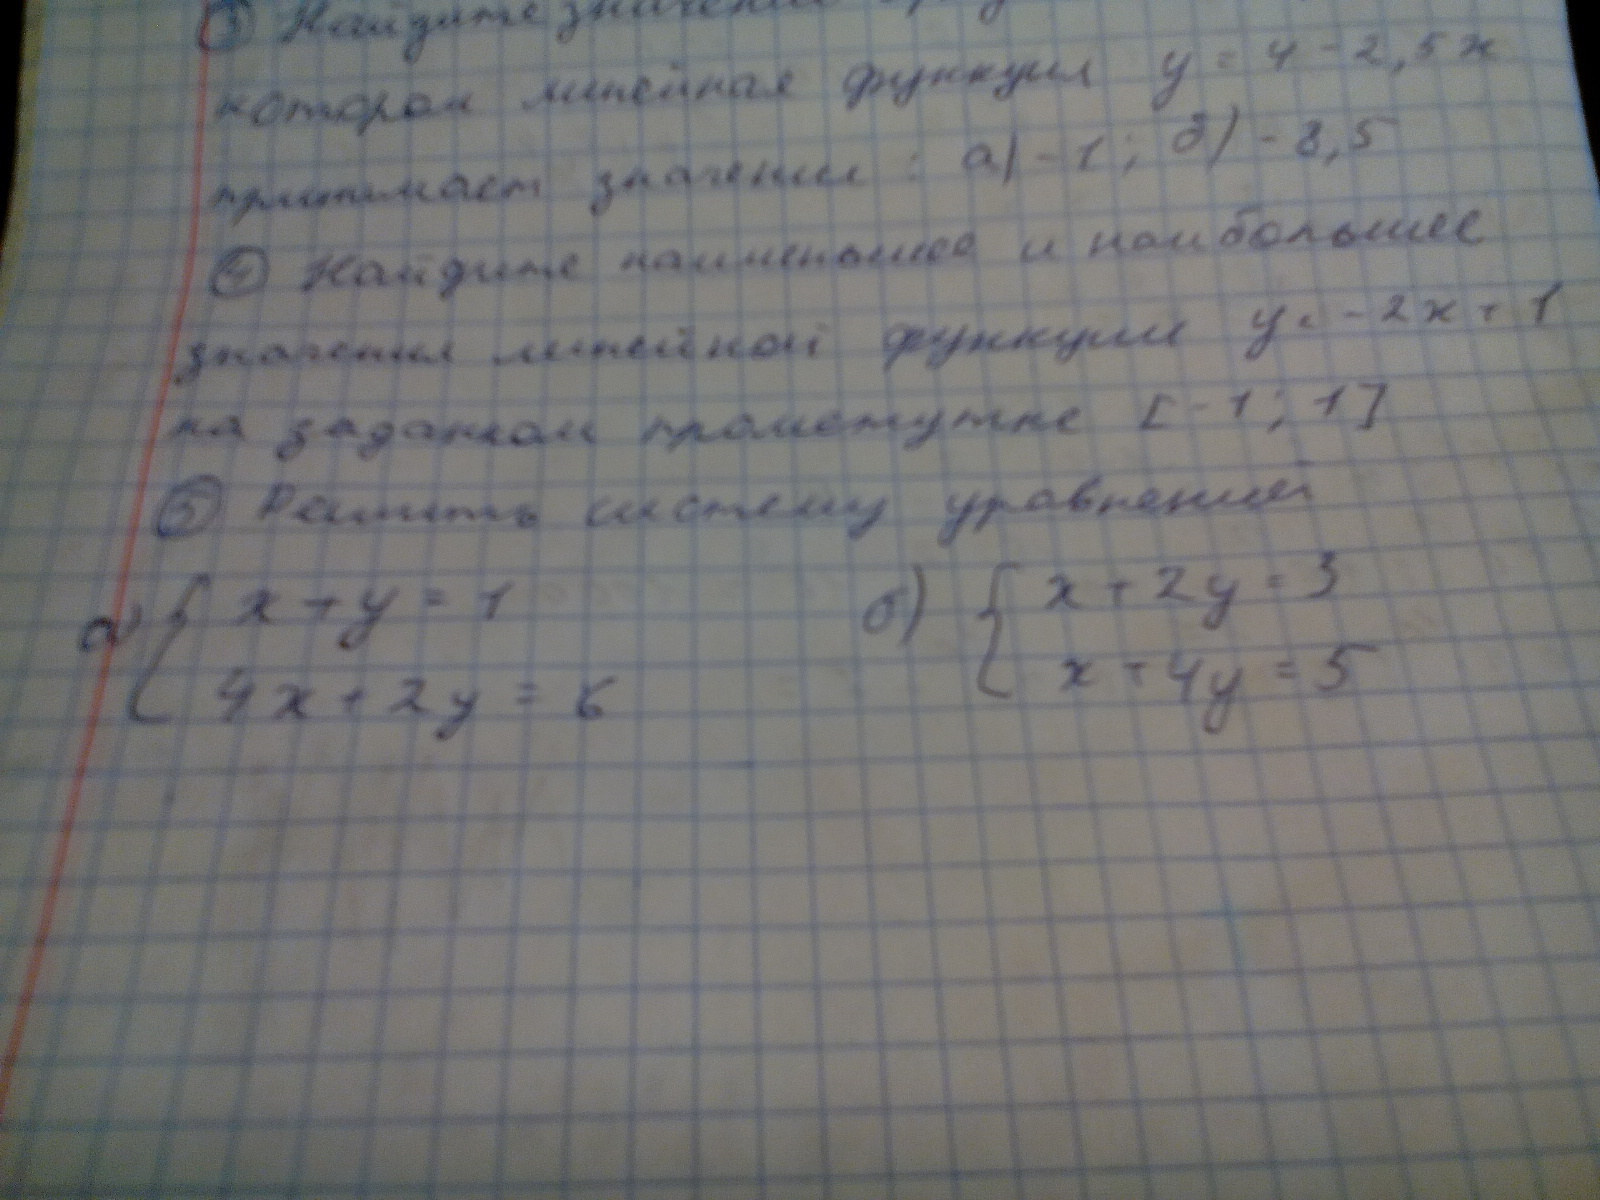 ③ Найдите значение
котором линейная функция y = 4 - 2,5x
принимает значения : а) -1 ; б) -8,5
④ Найдите наименьшее и наибольшее
значения линейной функции y = -2x + 1
на заданном промежутке [-1 ; 1]
⑤ Решить систему уравнений
а) { x + y = 1 б) { x + 2y = 3
4x + 2y = 6 x + 4y = 5